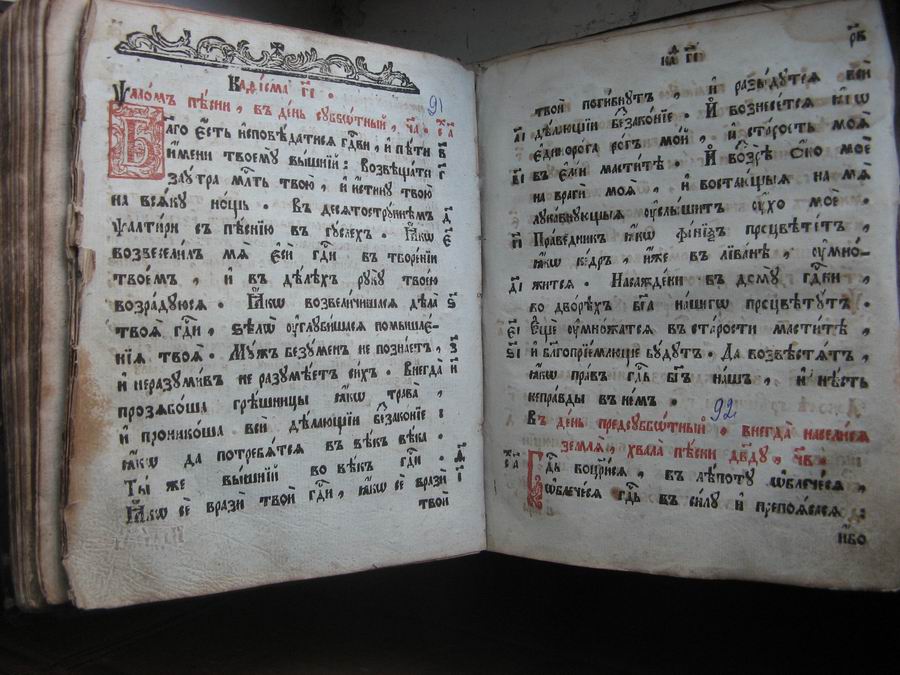 Каѳісма гі ·
Ѱаломъ пѣсни , въ день субботный , ча ·
91
Благо есть исповѣдатися гдви , и пѣти
имени твоему вышній : Возвѣщати
заутра млть твою , и истину твою
на всяку нощь · Въ десятострꙋннѣмъ
ѱалтири съ пѣснію въ гуслехъ · Ꙗкѡ
возвеселилъ мя еси гди въ твореніи
твоемъ , и въ дѣлехъ руку твоею
возрадуюся · Ꙗкѡ возвеличишася дѣла
твоя гди , ѕѣлѡ ѹглубишася помышле-
нія твоя · Мужъ безуменъ не познаетъ ,
и неразумивъ не разумѣетъ сихъ · Внегда
прозябоша грѣшницы ꙗкѡ трава ,
и проникоша вси дѣлающіи беззаконіе :
ꙗкѡ да потребятся въ вѣкъ вѣка ·
Ты же вышній во вѣкъ гди ·
Ꙗкѡ се врази твои гди , ꙗкѡ се врази
твои
рв
твои погибнутъ , и разыдутся вси
дѣлающіи беззаконіе · И вознесется ꙗкѡ
единорога рогъ мой , и старость моя
въ елеи маститѣ · И воззрѣ око мое
на враги моя , и востающыя на мя
лукавнующыя ѹслышитъ ѹхо мое ·
Праведникъ ꙗкѡ фініѯъ процвѣтетъ ,
ꙗкѡ кедръ , иже въ ліванѣ , ѹмно-
жится · Насаждени въ дому гдни ,
во дворѣхъ бга нашегѡ процвѣтутъ ·
Еще ѹмножатся въ старости маститѣ ,
и благопріемлюще будутъ · Да возвѣстятъ ,
ꙗкѡ правъ гдь бгъ нашъ , и нѣсть
неправды въ немъ ·
92
Въ день предсубботный · внегда населися
земля , хвала пѣсни двду , чв ·
Гдь воцрися , въ лѣпоту ѡблечеся ,
ѡблечеся гдь въ силу и препоясася :
ибо